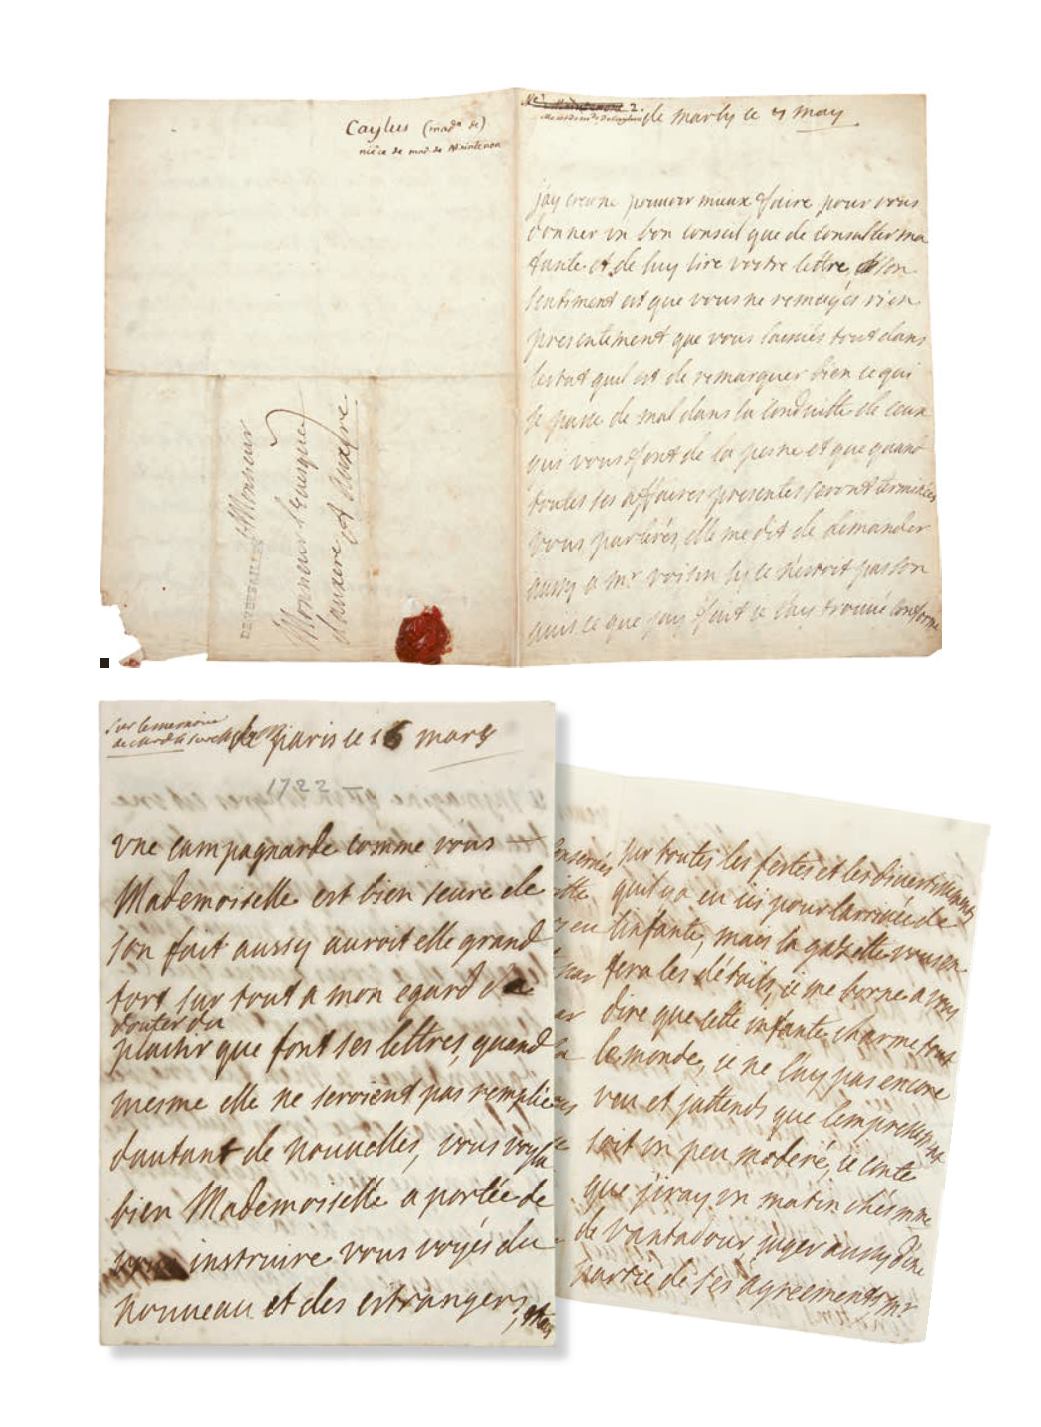 Caylus (mad.e de)
nièce de mad. de Maintenon
de marly ce 4 may
jay creu ne pouvoir mieux faire pour vous
donner un bon conseil que de consulter ma
tante et de luy lire vostre lettre, son
sentiment est que vous ne remuiés rien
presentement que vous laissiés tout dans
lestat quil est de remarquer bien ce qui
se passe de mal dans la conduitte de ceux
qui vous font de la peine et que quand
toutes ses affaires presentes seront terminées
vous parlerés, elle me dit de demander
aussy a mr voisin sy ce nestoit pas son
avis ce que jay fait je lay trouvé conforme
DE VERSAILLES
A Monsieur
Monsieur levesque
dauxerre
A Auxerre
Sur le memoire
de paris ce 16 mars
1722
une campagnarde comme vous
Mademoiselle est bien seure de
son fait aussy auroit elle grand
tort sur tout a mon egard de
douter du
plaisir que font ses lettres, quand
mesme elle ne seroient pas remplies
dautant de nouvelles, vous voyla
bien Mademoiselle a portée de
vous instruire vous voyés du
nouveau et des estrangers,
sur toutes les festes et les divertissements
quil y a eu icy pour larrivée de
linfante, mais la gazette vous en
fera les détails, je me borne a vous
dire que cette infante charme tout
le monde, je ne lay pas encore
veu et jattends que lempressement
soit un peu modéré, je conte
que jiray un matin chés mme
de vantadour juger aussy dune
partie de ses agreements mr